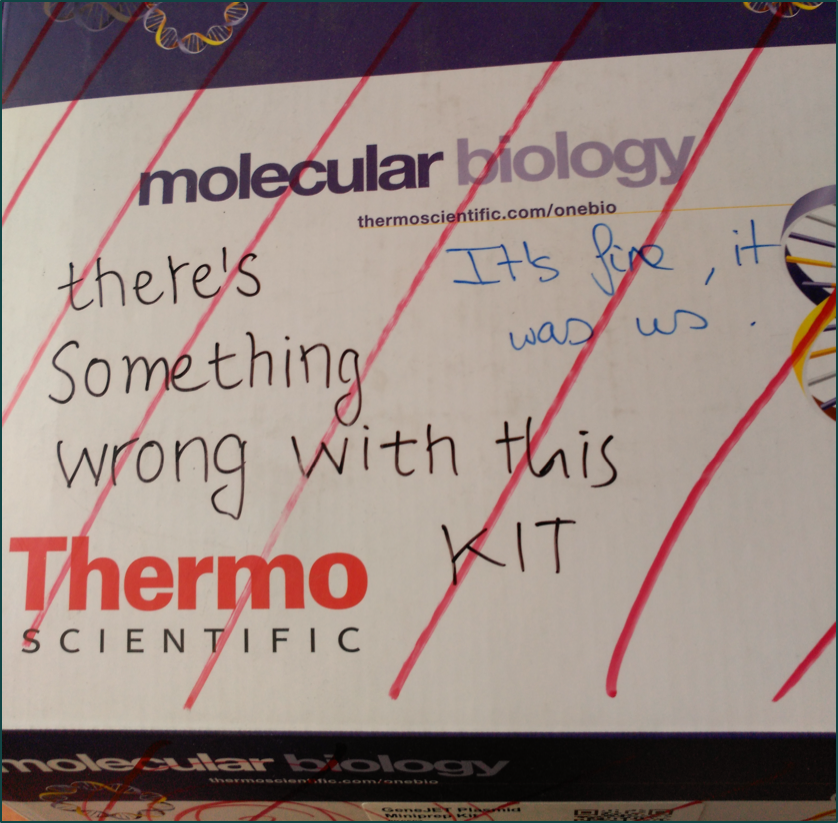 molecular biology
thermoscientific.com/onebio
there's
Something
wrong with this
KIT
It's fine, it
was us.
Thermo
SCIENTIFIC
molecular biology
thermoscientific.com/onebio
GeneJET Plasmid
Miniprep Kit